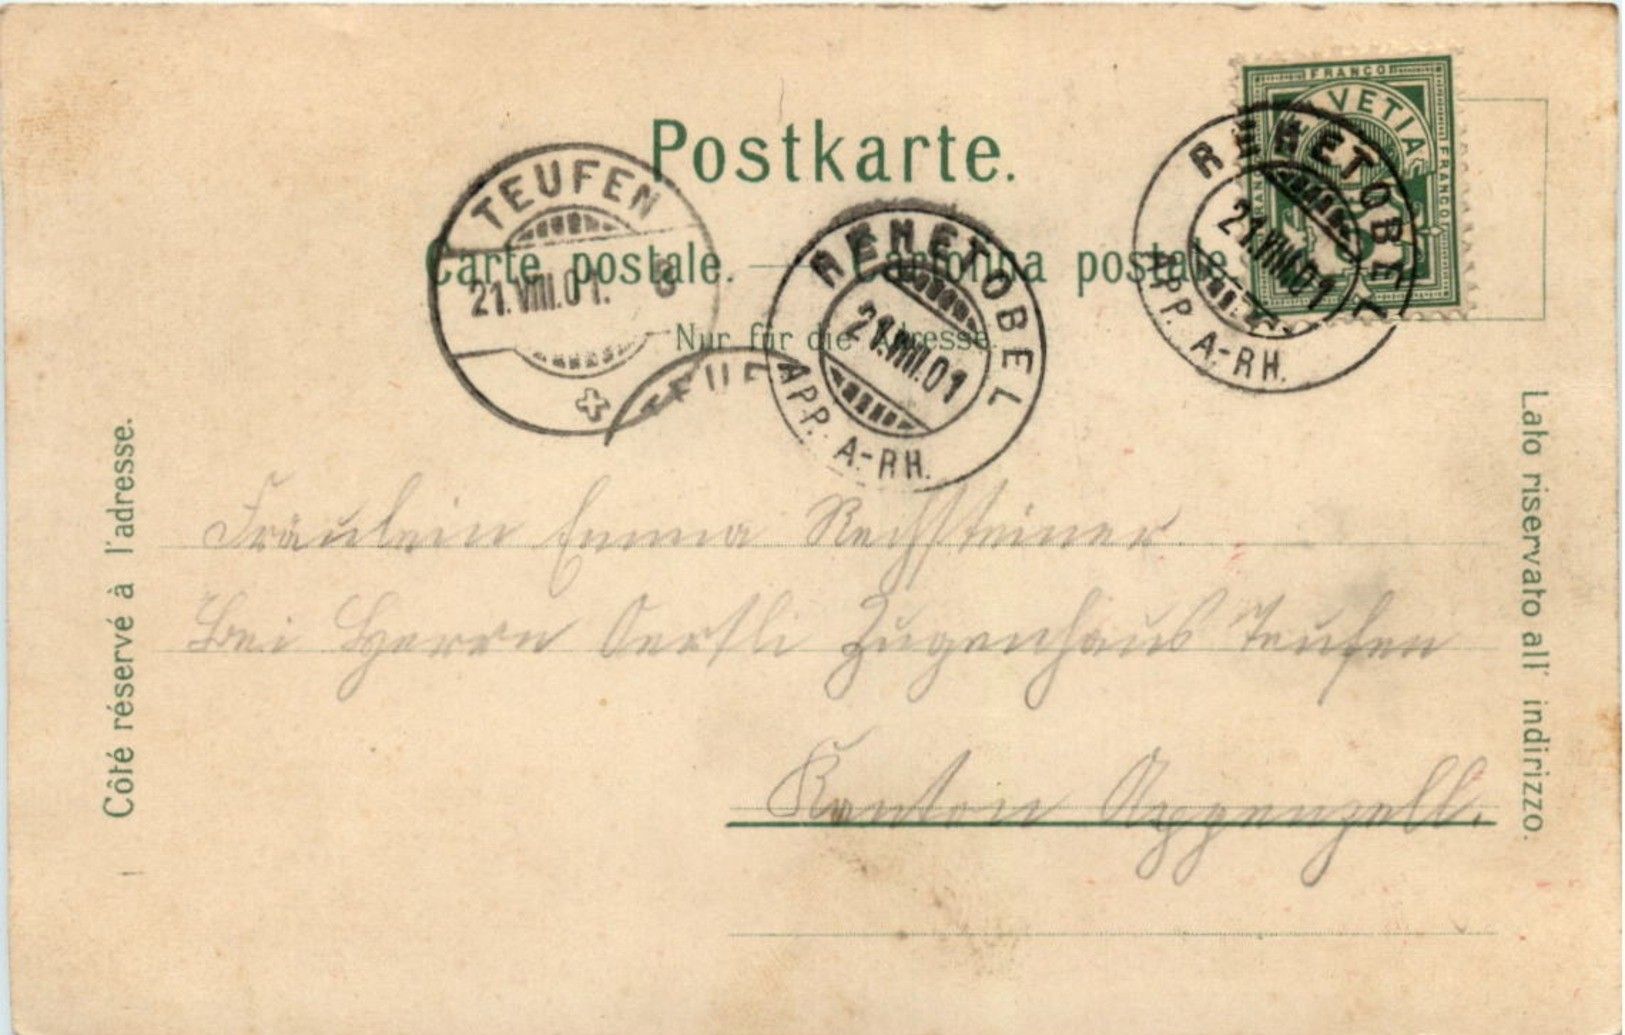 FRANCO
HELVETIA
FRANCO
Postkarte.
Carte postale. — Cartolina postale
Nur für die Adresse.
TEUFEN
21.VIII.01. 8
TEUF
REHETOBEL
21.VIII.01
APP. A-RH.
REHETOBEL
21.VIII.01
APP. A-RH.
Côté réservé à l'adresse.
Lato riservato all' indirizzo.
Fräulein Emma Rechsteiner.
Bei Herrn Oertli Zugenhaus Teufen
Kanton Appenzell.